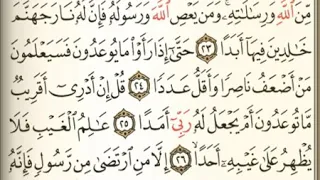 مِّنَ ٱللَّهِ وَرِسَٰلَٰتِهِۦ ۚ وَمَن يَعْصِ ٱللَّهَ وَرَسُولَهُۥ فَإِنَّ لَهُۥ نَارَ جَهَنَّمَ
خَٰلِدِينَ فِيهَآ أَبَدًا ٢٣ حَتَّىٰٓ إِذَا رَأَوْا۟ مَا يُوعَدُونَ فَسَيَعْلَمُونَ
مَنْ أَضْعَفُ نَاصِرًا وَأَقَلُّ عَدَدًا ٢٤ قُلْ إِنْ أَدْرِىٓ أَقَرِيبٌ
مَّا تُوعَدُونَ أَمْ يَجْعَلُ لَهُۥ رَبِّىٓ أَمَدًا ٢٥ عَٰلِمُ ٱلْغَيْبِ فَلَا
يُظْهِرُ عَلَىٰ غَيْبِهِۦٓ أَحَدًا ٢٦ إِلَّا مَنِ ٱرْتَضَىٰ مِن رَّسُولٍ فَإِنَّهُۥ